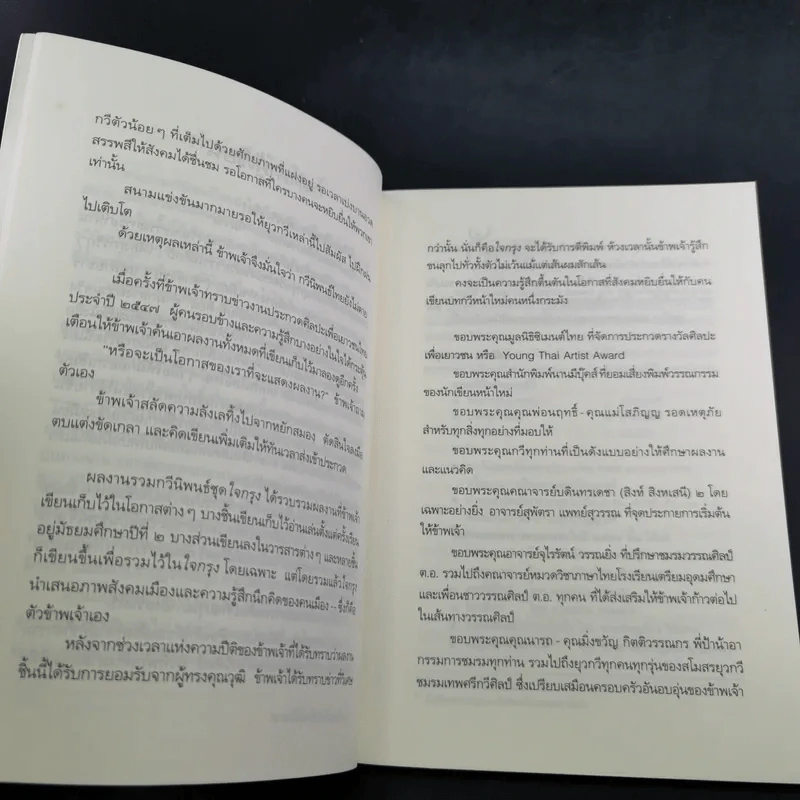 กวีตัวน้อยๆ ที่เต็มไปด้วยศักยภาพที่แฝงอยู่ รอเวลาเบ่งบาน
สรรพสีให้สังคมได้ชื่นชม รอโอกาสที่ใครบางคนจะหยิบยื่นให้พวกเขา
เท่านั้น
สนามแข่งขันมากมายรอให้ยุวกวีเหล่านี้ไปสัมผัส
ไปเติบโต
ด้วยเหตุผลเหล่านี้ ข้าพเจ้าจึงมั่นใจว่า กวีนิพนธ์ไทยยังไม่ตาย
เมื่อครั้งที่ข้าพเจ้าทราบข่าวงานประกวดศิลปะเพื่อเยาวชนไทย
ประจำปี ๒๕๔๗ ผู้คนรอบข้างและความรู้สึกบางอย่างในใจได้กระตุ้น
เตือนให้ข้าพเจ้าค้นเอาผลงานทั้งหมดที่เขียนเก็บไว้มาลองดูอีกครั้ง
"หรือจะเป็นโอกาสของเราที่จะแสดงผลงาน?" ข้าพเจ้าถาม
ตัวเอง
ข้าพเจ้าสลัดความลังเลทิ้งไปจากหยักสมอง ตัดสินใจลงมือ
ตบแต่งขัดเกลา และคิดเขียนเพิ่มเติมให้ทันเวลาส่งเข้าประกวด
ผลงานรวมกวีนิพนธ์ชุดใจกรุง ได้รวบรวมผลงานที่ข้าพเจ้า
เขียนเก็บไว้ในโอกาสต่างๆ บางชิ้นเขียนเก็บไว้อ่านเล่นตั้งแต่ครั้งเรียน
อยู่มัธยมศึกษาปีที่ ๒ บางส่วนเขียนลงในวารสารต่างๆ และหลายชิ้น
ก็เขียนขึ้นเพื่อรวมไว้ในใจกรุง โดยเฉพาะ แต่โดยรวมแล้วใจกรุง
นำเสนอภาพสังคมเมืองและความรู้สึกนึกคิดของคนเมือง – ซึ่งก็คือ
ตัวข้าพเจ้าเอง
หลังจากช่วงเวลาแห่งความปีติของข้าพเจ้าที่ได้รับทราบว่าผลงาน
ชิ้นนี้ได้รับการยอมรับจากผู้ทรงคุณวุฒิ ข้าพเจ้าได้รับทราบข่าวที่วิเศษ
กว่านั้น นั่นก็คือใจกรุง จะได้รับการตีพิมพ์ ห้วงเวลานั้นข้าพเจ้ารู้สึก
ขนลุกไปทั่วทั้งตัวไม่เว้นแม้แต่เส้นผมสักเส้น
คงจะเป็นความรู้สึกตื้นตันในโอกาสที่สังคมหยิบยื่นให้กับคน
เขียนบทกวีหน้าใหม่คนหนึ่งกระมัง
ขอบพระคุณมูลนิธิซิเมนต์ไทย ที่จัดการประกวดรางวัลศิลปะ
เพื่อเยาวชน หรือ Young Thai Artist Award
ขอบพระคุณสำนักพิมพ์นานมีบุ๊คส์ที่ยอมเสี่ยงพิมพ์วรรณกรรม
ของนักเขียนหน้าใหม่
ขอบพระคุณคุณพ่อนฤทธิ์ - คุณแม่โสภิญญ รอดเหตุภัย
สำหรับทุกสิ่งทุกอย่างที่มอบให้
ขอบพระคุณกวีทุกท่านที่เป็นดังแบบอย่างให้ศึกษาผลงาน
และแนวคิด
ขอบพระคุณคณาจารย์บดินทรเดชา (สิงห์ สิงหเสนี) ๒ โดย
เฉพาะอย่างยิ่ง อาจารย์สุพัตรา แพทย์สุวรรณ ที่จุดประกายการเริ่มต้น
ให้ข้าพเจ้า
ขอบพระคุณอาจารย์จุไรรัตน์ วรรณยิ่ง ที่ปรึกษาชมรมวรรณศิลป์
ต.อ. รวมไปถึงคณาจารย์หมวดวิชาภาษาไทยโรงเรียนเตรียมอุดมศึกษา
และเพื่อนชาววรรณศิลป์ ต.อ. ทุกคน ที่ได้ส่งเสริมให้ข้าพเจ้าก้าวต่อไป
ในเส้นทางวรรณศิลป์
ขอบพระคุณคุณนารถ - คุณมิ่งขวัญ กิตติวรรณกร พี่ป้าน้าอา
กรรมการชมรมทุกท่าน รวมไปถึงยุวกวีทุกคนทุกรุ่นของสโมสรยุวกวี
ชมรมเทพศรีกวีศิลป์ ซึ่งเปรียบเสมือนครอบครัวอันอบอุ่นของข้าพเจ้า